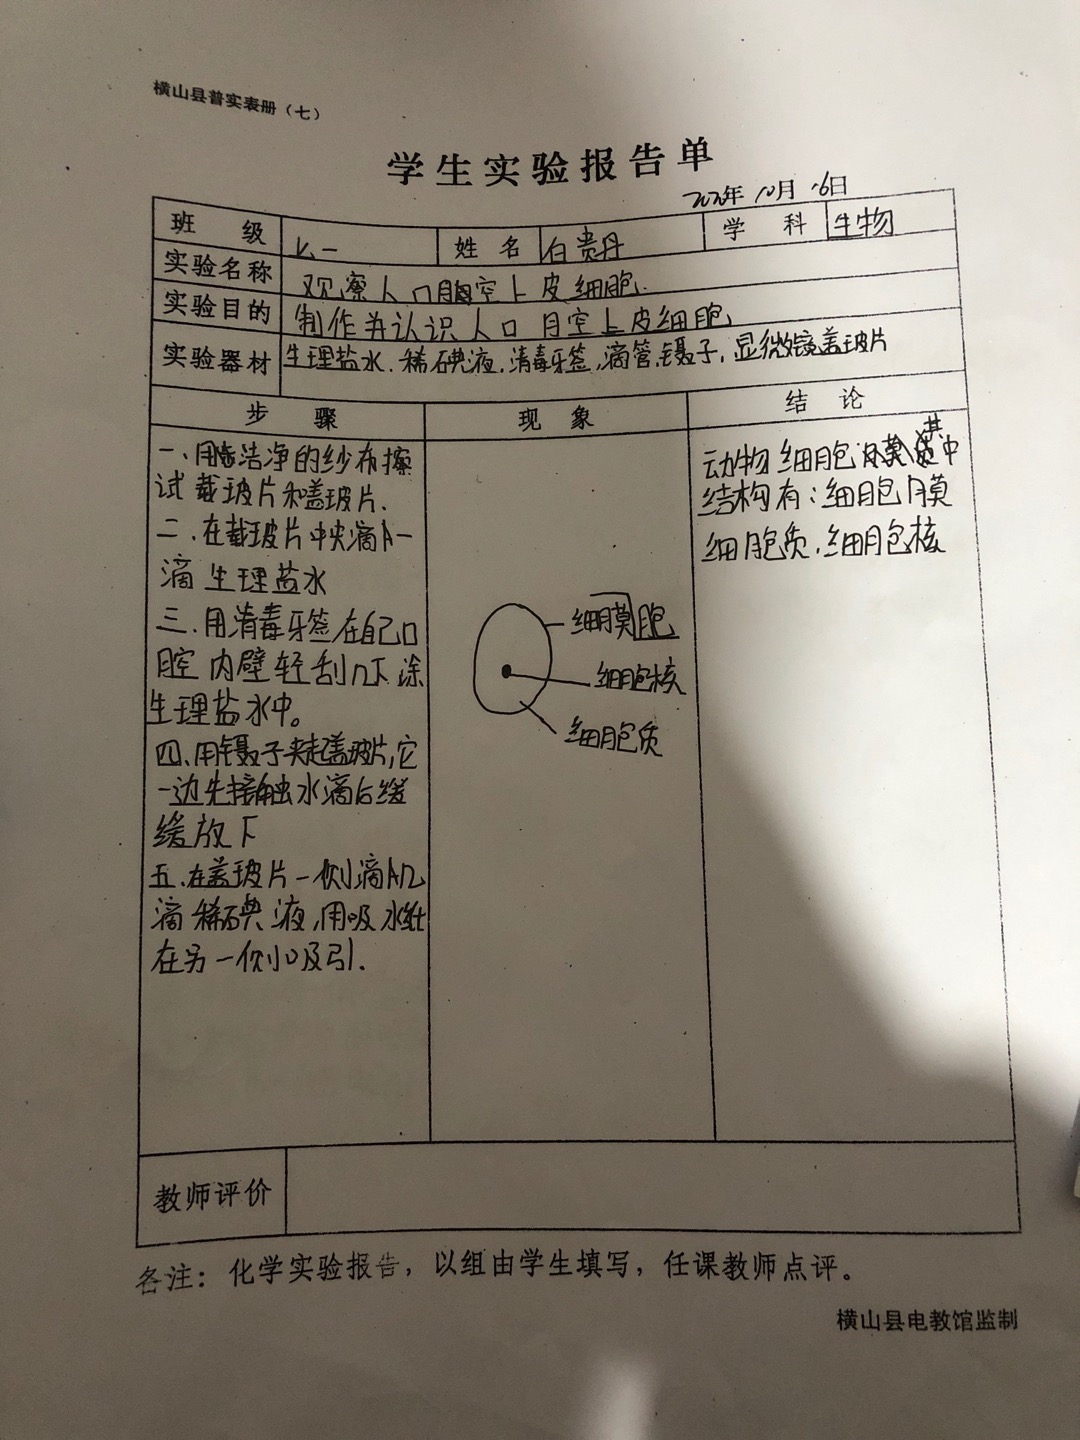 横山县普实表册（七）
学生实验报告单
年10月16日
班级 七.一 姓名 白贵丹 学科 生物
实验名称 观察人口腔上皮细胞.
实验目的 制作并认识人口腔上皮细胞
实验器材 生理盐水.稀碘液,消毒牙签,滴管,镊子,显微镜盖玻片
步骤 现象 结论
一、用洁净的纱布擦
试载玻片和盖玻片.
二、在载玻片中央滴入一
滴生理盐水
三、用消毒牙签在自己口
腔内壁轻刮几下涂
生理盐水中。
四、用镊子夹起盖玻片,它
一边先接触水滴后缓
缓放下
五、在盖玻片一侧滴入几
滴稀碘液,用吸水纸
在另一侧吸引.
细膜胞
细胞核
细胞质
动物细胞其中
结构有:细胞膜
细胞质.细胞核
教师评价
各注：化学实验报告，以组由学生填写，任课教师点评。
横山县电教馆监制